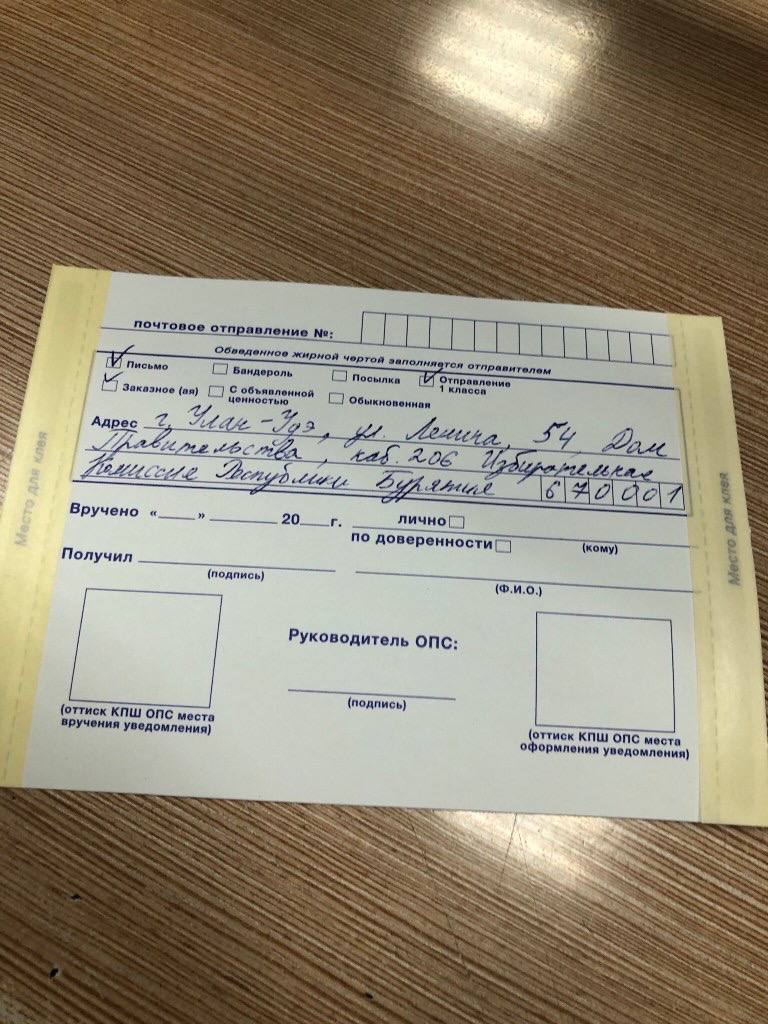 почтовое отправление №:
Обведенное жирной чертой заполняется отправителем
Письмо Бандероль Посылка Отправление 1 класса
Заказное (ая) С объявленной ценностью Обыкновенная
Адрес г. Улан-Удэ, ул. Ленина, 54, Дом
Правительства, каб. 206 Избирательная
Комиссия Республики Бурятия 670001
Вручено «___» ______ 20___г. лично
по доверенности (кому)
Получил
(подпись) (Ф.И.О.)
Руководитель ОПС:
(подпись)
(оттиск КПШ ОПС места
вручения уведомления)
(оттиск КПШ ОПС места
оформления уведомления)
Место для клея
Место для клея